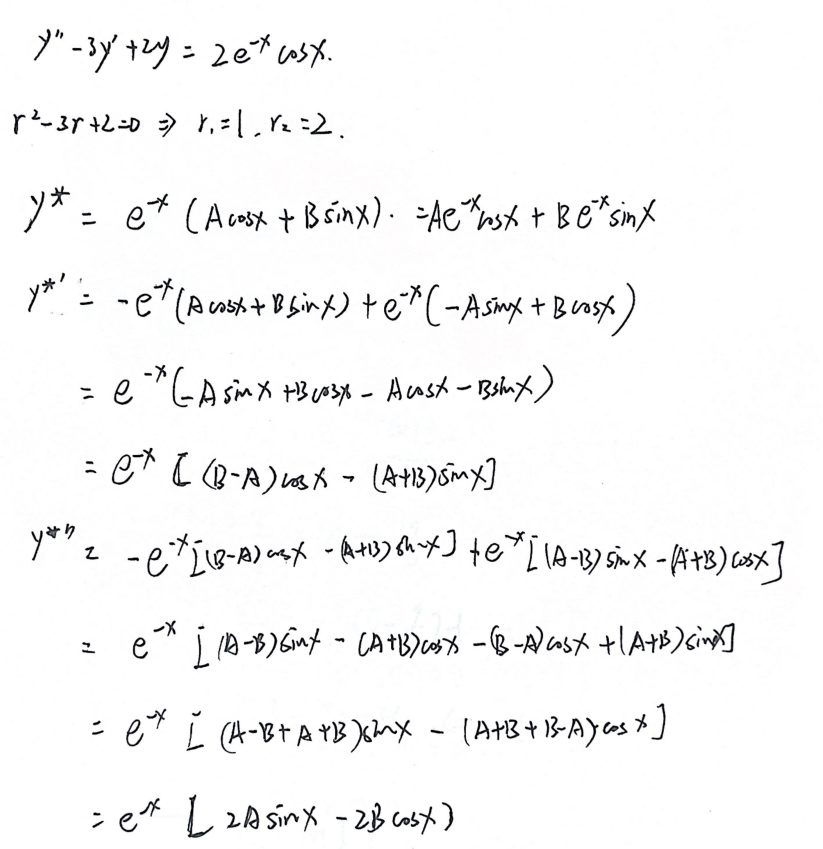 y'' - 3y' + 2y = 2e^{-x} cosx.
r^2 - 3r + 2 = 0 ⇒ r_1 = 1, r_2 = 2.
y* = e^{-x} (A cosx + B sinx). = Ae^{-x}cosx + Be^{-x}sinx
y*' = -e^{-x}(A cosx + B sinx) + e^{-x}(-A sinx + B cosx)
= e^{-x}(-A sinx + B cosx - A cosx - B sinx)
= e^{-x} [(B-A) cosx - (A+B) sinx]
y*'' = -e^{-x}[(B-A) cosx - (A+B) sinx] + e^{-x}[(A-B) sinx - (A+B) cosx]
= e^{-x} [(A-B) sinx - (A+B) cosx - (B-A) cosx + (A+B) sinx]
= e^{-x} [(A-B+A+B) sinx - (A+B+B-A) cosx]
= e^{-x} [2A sinx - 2B cosx)